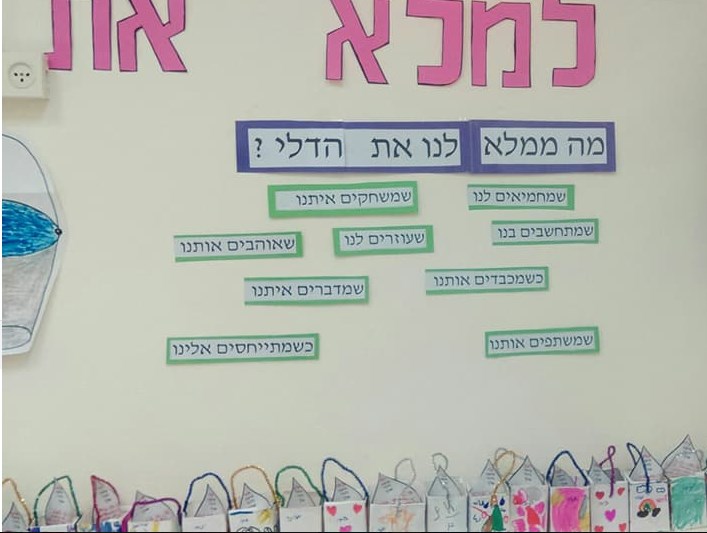 למלא את
מה ממלא לנו את הדלי ?
שמחמיאים לנו
שמשחקים איתנו
שמתחשבים בנו
שעוזרים לנו
שאוהבים אותנו
כשמכבדים אותנו
שמדברים איתנו
שמשתפים אותנו
כשמתייחסים אלינו